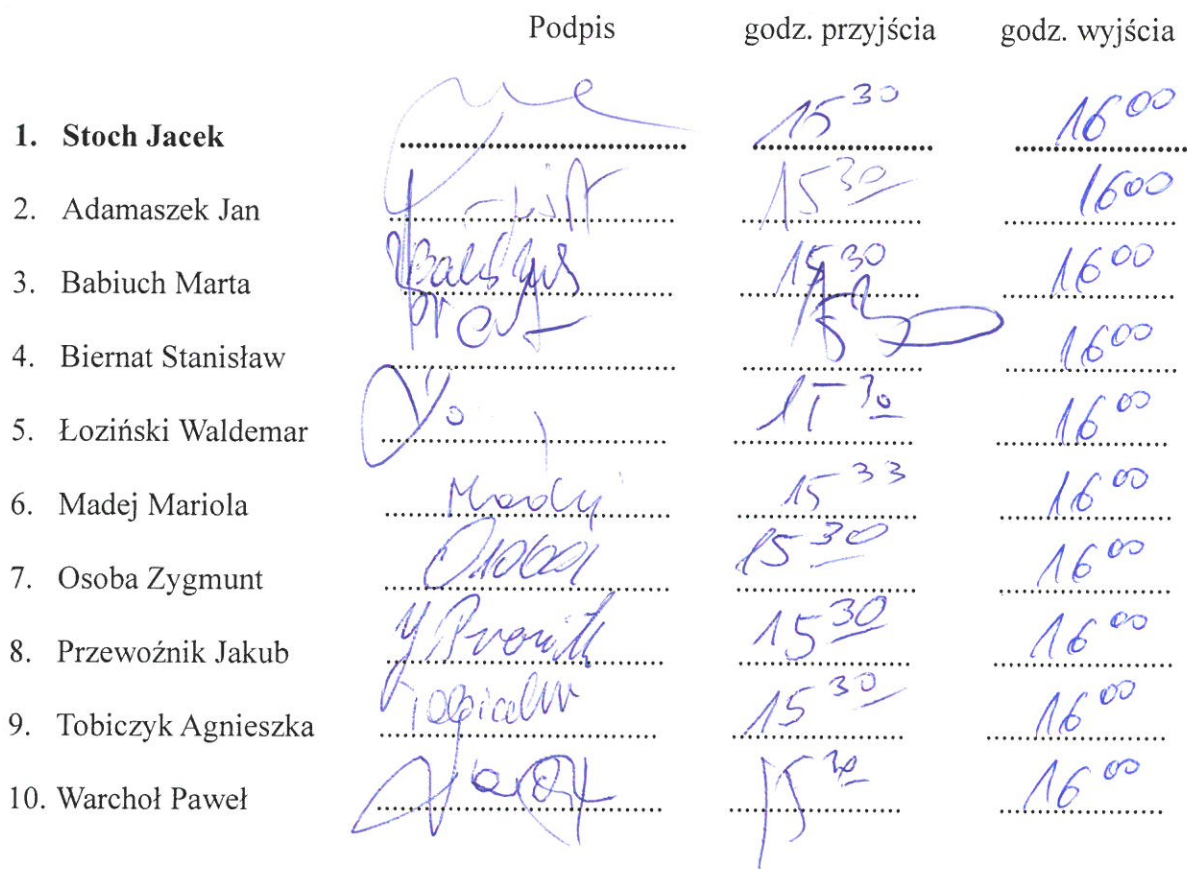 Podpis godz. przyjścia godz. wyjścia
1. Stoch Jacek 15 30 16 00
2. Adamaszek Jan 15 30 16 00
3. Babiuch Marta 15 30 16 00
4. Biernat Stanisław 15 30 16 00
5. Łoziński Waldemar 15 30 16 00
6. Madej Mariola Madej 15 33 16 00
7. Osoba Zygmunt Osoba 15 30 16 00
8. Przewoźnik Jakub 15 30 16 00
9. Tobiczyk Agnieszka 15 30 16 00
10. Warchoł Paweł 15 30 16 00